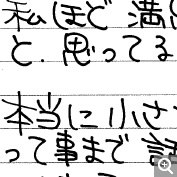 私ほど 満
と.思ってる
本当に小さ
って事まで 話